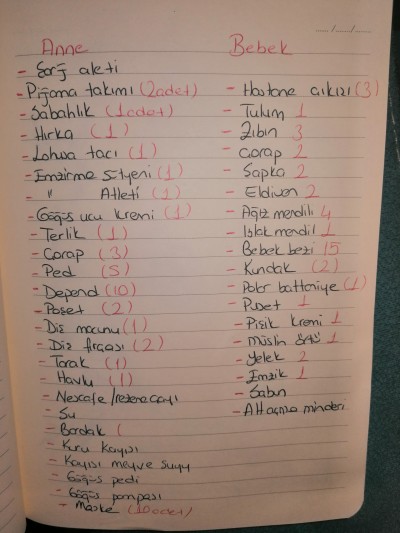 Anne
- Şarj aleti
- Pijama takımı (2 adet)
- Sabahlık (1 adet)
- Hırka (1)
- Lohusa tacı (1)
- Emzirme Sütyeni (1)
- " Atleti (1)
- Göğüs ucu kremi (1)
- Terlik (1)
- Çorap (3)
- Ped (5)
- Depend (10)
- Poşet (2)
- Diş macunu (1)
- Diş fırçası (2)
- Tarak (1)
- Havlu (1)
- Nescafe / rezene çayı
- Su
- Bardak (
- Kuru Kayısı
- Kayısı meyve suyu
- Göğüs pedi
- Göğüs pompası
- Maske (10 adet)
Bebek
- Hastane çıkızı (3)
- Tulum 1
- Zıbın 3
- Çorap 2
- Şapka 2
- Eldiven 2
- Ağız mendili 4
- Islak mendil 1
- Bebek bezi 15
- Kundak (2)
- Polar battaniye (1)
- Puset 1
- Pişik kremi 1
- Müslin 1
- Yelek 2
- Emzik 1
- Sabun
- Alt açma minderi